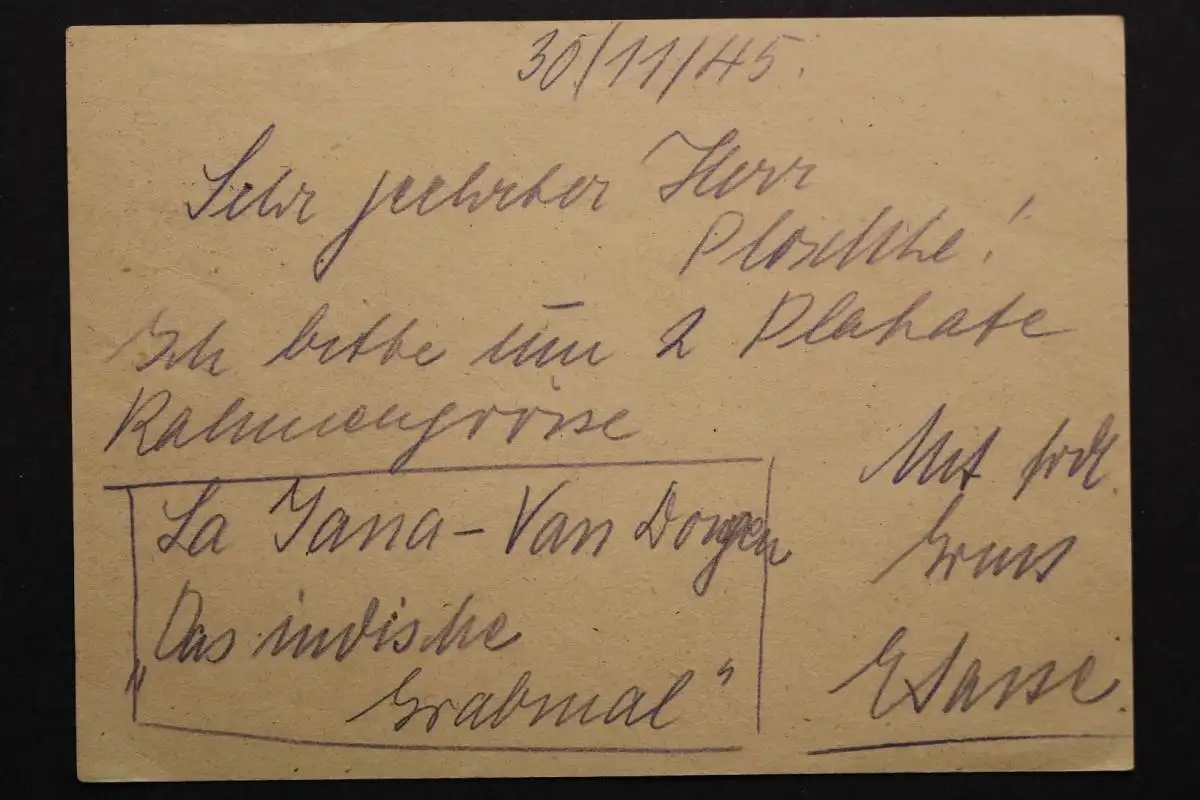 30/11/45.
Sehr geehrter Herr
Ploschke!
Ich bitte um 2 Plakate
Rahmengrösse
La Jana - Van Dongen
„Das indische
Grabmal"
Mit frdl.
Gruss